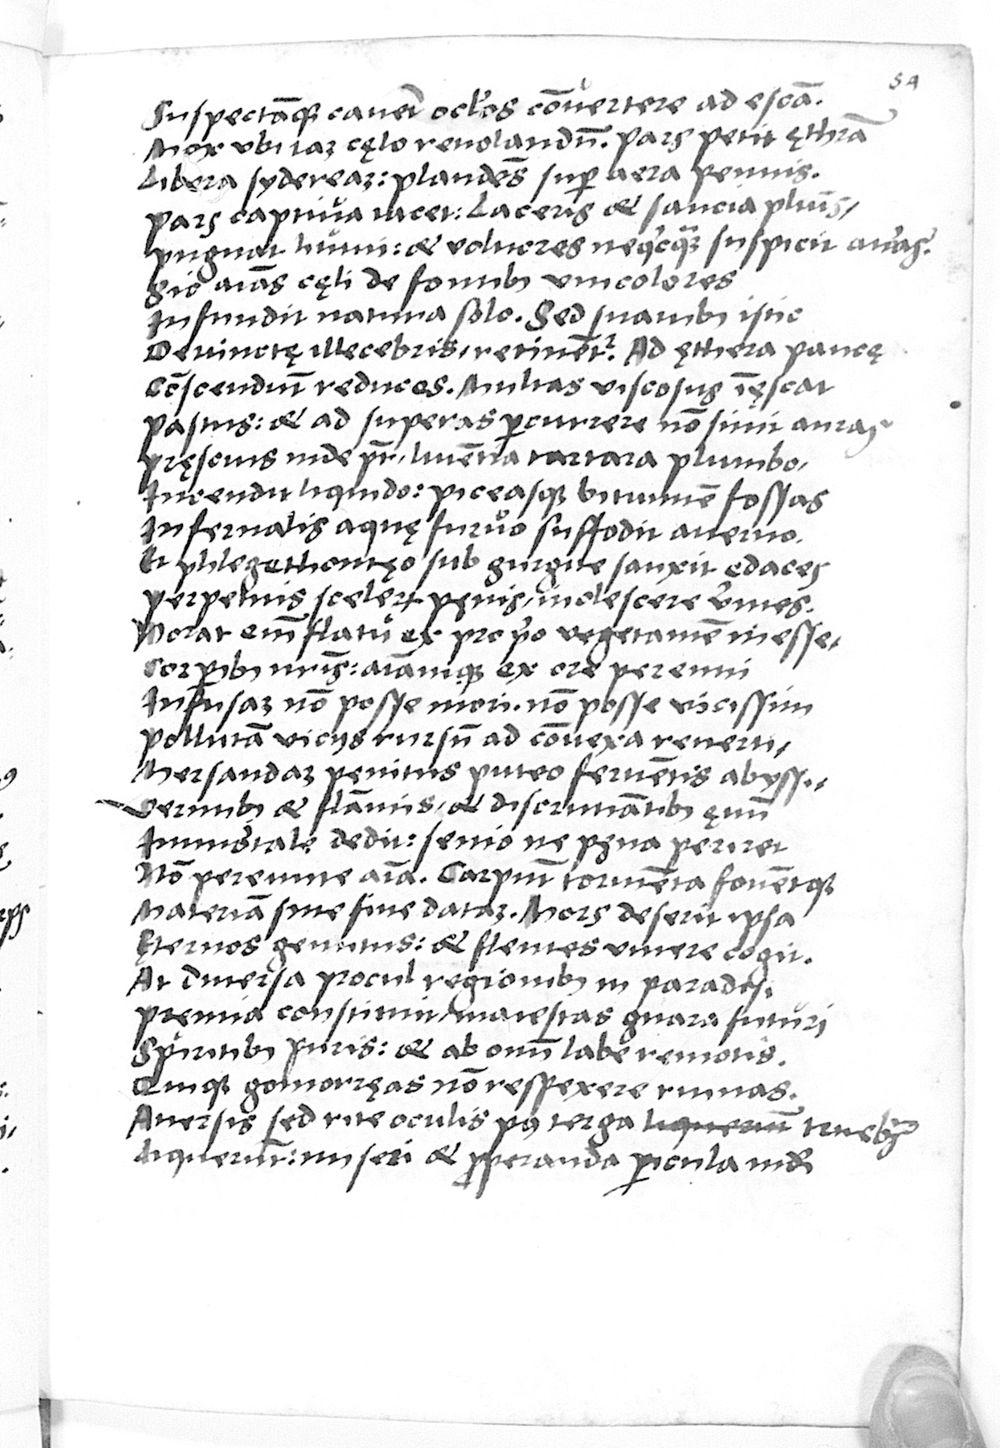 54
Suspectāqꝫ cavet ocl'os cōvertere ad escā.
Mox ubi iaꝫ cęlo revolandū. pars petit ęthrā
Libera sydereaꝫ: plaudēs sup̲ aera pennis.
pars captiva iacet: Laceris & saucia plūis,
pugnat humi: & volucres neq'cq̄ꝫ suspicit auras.
Sic aīas cęli de fontibꝫ unicolores
Infundit natura solo. Sed suavibꝫ istic
Devinctę illecebris, retinēt᷑. Ad ęthera paucę
Cōscendūt reduces. Multas viscosus īęscat
pastus: & ad superas p̲currere nō sinit auras
pręscius inde pr̄, livētia tartara plumbo,
Incendit liquido: piceasqꝫ bitumīe fossas
Infernalis aquę furvo suffodit averno.
Et phlegethontęo sub gurgite sanxit edaces
perpetuis sceleꝝ pęnis, inolescere v̄mes.
Norat em̄ flatu ex prop'o vegetamē inesse,
Corp̲ibꝫ nr̄is: aīamqꝫ ex ore perenni
Infusaꝫ nō posse mori. nō posse vicissim
pollutā vicijs rursū ad cōvexa reverti,
Mersandaꝫ penitus puteo fervētis abyssi,
Vermibꝫ & flāmis, & discruciātibꝫ ęvū
Immortale dedit: senio ne pęna periret
Nō pereunte aīa. Carpūt tormēta fovētqꝫ
Materiā sine fine dataꝫ. Mors deserit ipsa
Ęternos gemitus: & flentes vivere cogit.
At diversa procul regionibꝫ in paradisi
pręmia constituit, maiestas gnara futuri
Spiritibꝫ puris: & ab omī labe remotis.
Quiqꝫ gomorręas nō respexere ruinas.
Aversis sed rite oculis pꝰ terga liquerūt tenebras
Liquerūt: miseri & ꝓperanda p̲icula mūdi